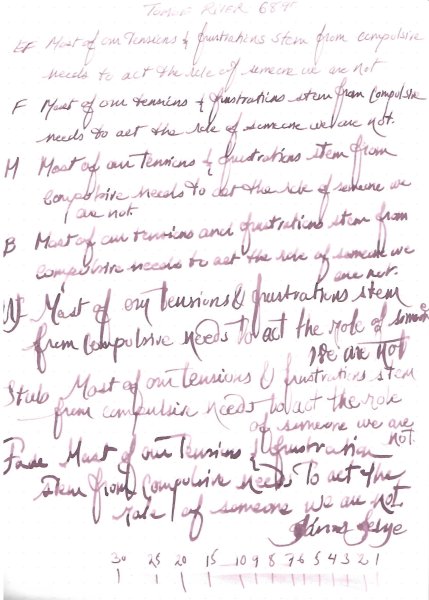 Tomoe River 68gr
EF Most of our Tensions & frustrations stem from compulsive
needs to act the role of someone we are not
F Most of our tensions & frustrations stem from compulsive
needs to act the role of someone we are not.
M Most of our tensions & frustrations stem from
compulsive needs to act the role of someone we
are not
B Most of our tensions and frustrations stem from
compulsive needs to act the role of someone we
are not.
Most of our tensions & frustrations stem
from compulsive needs to act the role of someone
we are not
Stub Most of our tensions & frustrations stem
from compulsive needs to act the role
of someone we are
not.
Fude Most of our Tensions & frustration
stem from compulsive needs to act the
role of someone we are not.
30 25 20 15 10 9 8 7 6 5 4 3 2 1